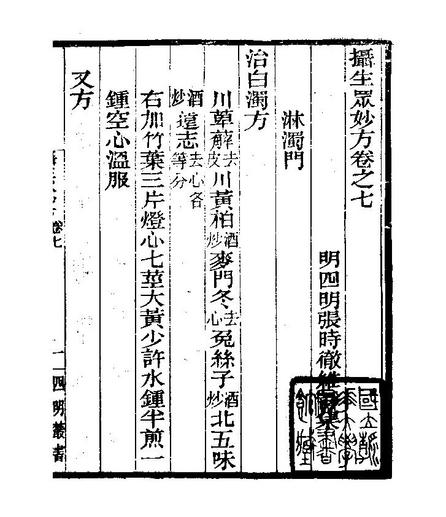 攝生眾妙方卷之七
明四明張時徹
淋濁門
治白濁方
川萆薢去皮川黃柏酒炒麥門冬去心兔絲子酒炒北五味
酒炒遠志去心各等分
右加竹葉三片燈心七莖大黃少許水鍾半煎一
鍾空心溫服
又方
卷七
一
四明叢書